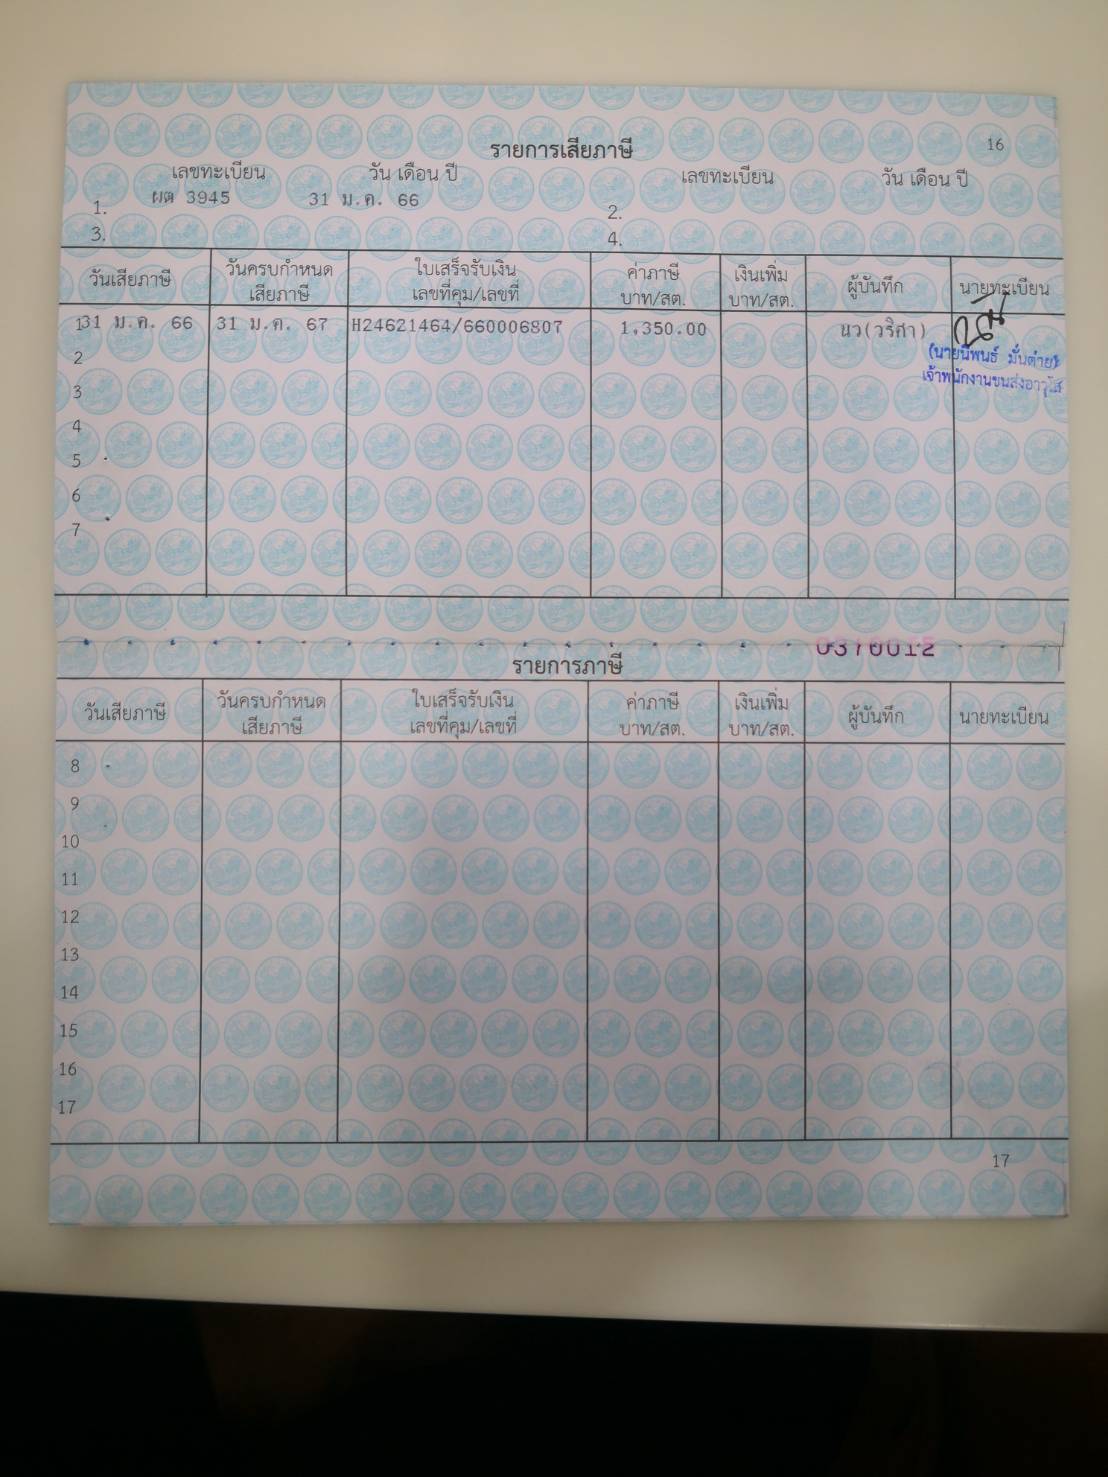 16
รายการเสียภาษี
เลขทะเบียน วัน เดือน ปี เลขทะเบียน วัน เดือน ปี
1. ผต 3945 31 ม.ค. 66 2.
3. 4.
วันเสียภาษี วันครบกำหนด เสียภาษี ใบเสร็จรับเงิน เลขที่คุม/เลขที่ ค่าภาษี บาท/สต. เงินเพิ่ม บาท/สต. ผู้บันทึก นายทะเบียน
1 31 ม.ค. 66 31 ม.ค. 67 H24621464/660006807 1,350.00 นว(วริศา)
(นายนิพนธ์ มั่นต่าย)
เจ้าพนักงานขนส่งอาวุโส
2
3
4
5
6
7
0370012
รายการภาษี
วันเสียภาษี วันครบกำหนด เสียภาษี ใบเสร็จรับเงิน เลขที่คุม/เลขที่ ค่าภาษี บาท/สต. เงินเพิ่ม บาท/สต. ผู้บันทึก นายทะเบียน
8
9
10
11
12
13
14
15
16
17
17